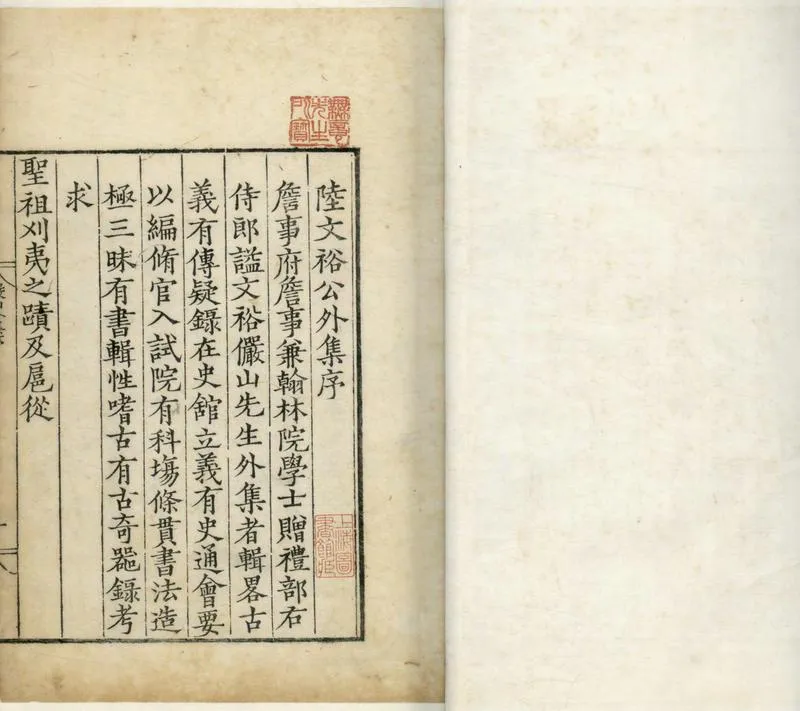 陸文裕公外集序
詹事府詹事兼翰林院學士贈禮部右
侍郎謚文裕儼山先生外集者輯畧古
義有傳疑錄在史舘立義有史通會要
以編脩官入試院有科塲條貫書法造
極三昧有書輯性嗜古有古奇器錄考
求
聖祖刈夷之蹟及扈從
上海圖
書館藏